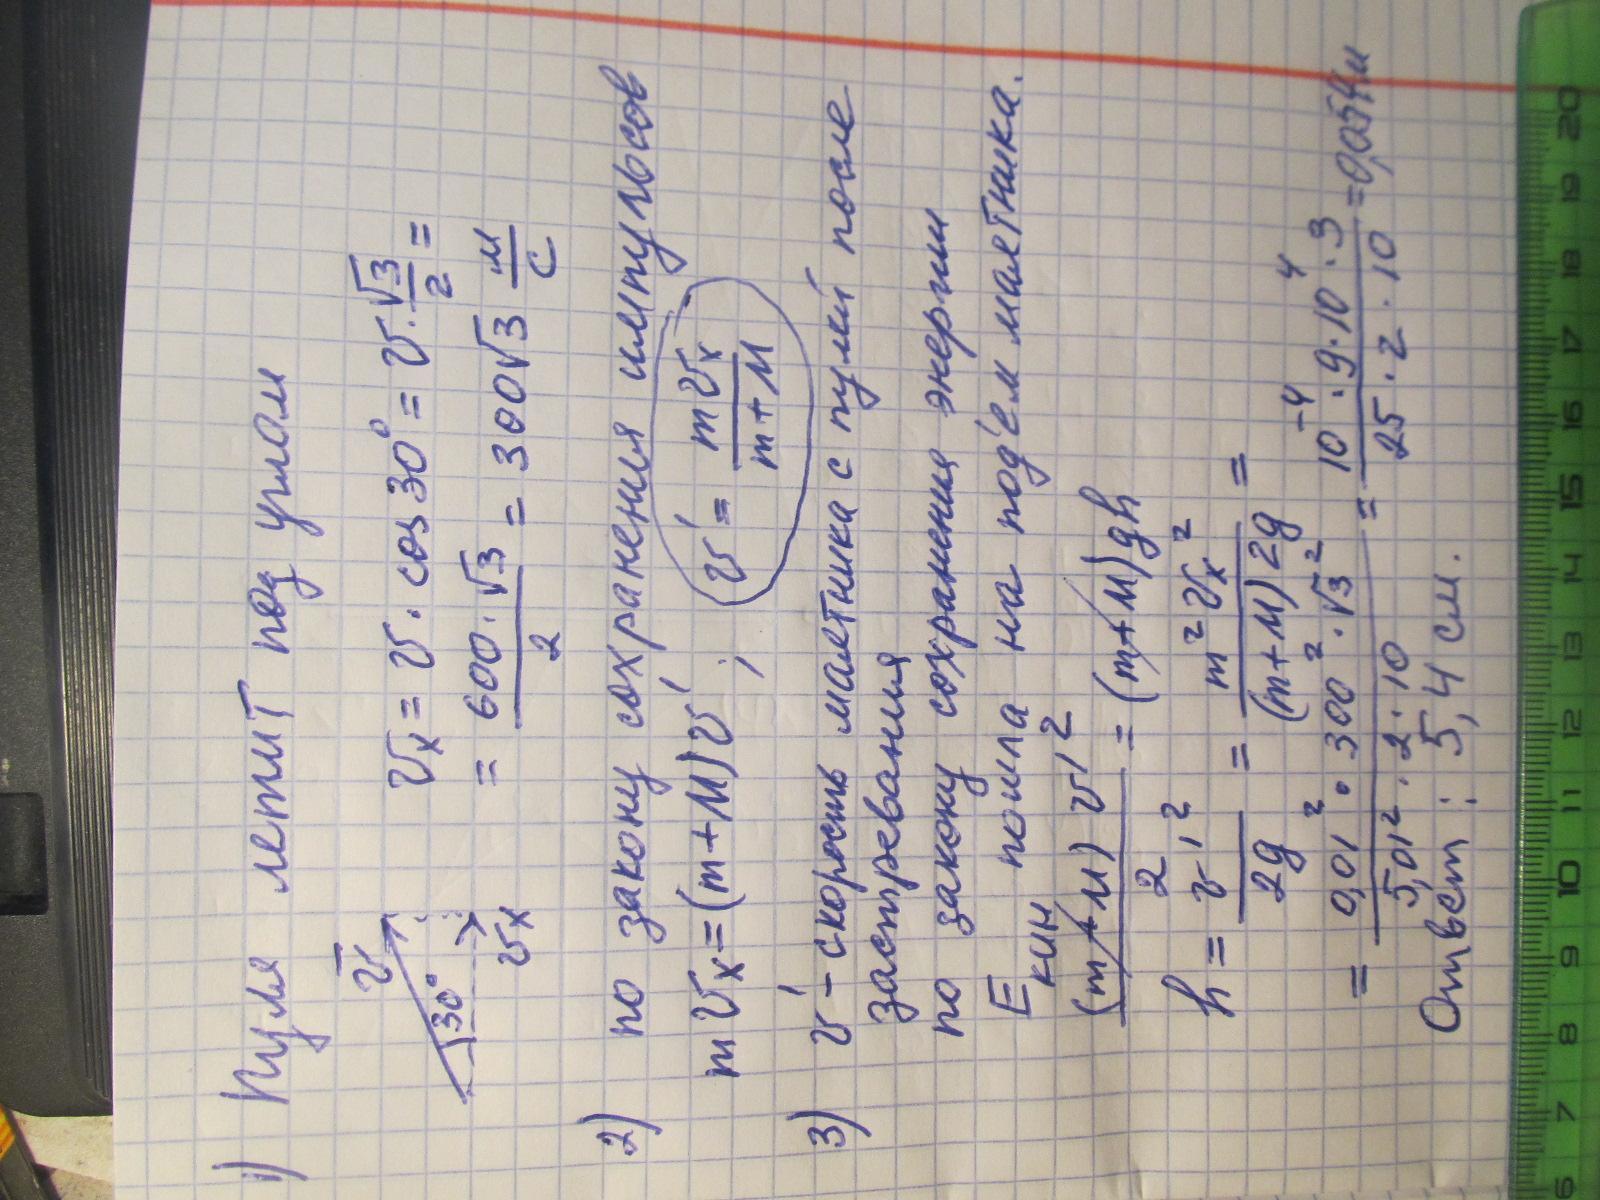 1) Пуля летит под углом
v̅
30°
vₓ
vₓ = v · cos 30° = v · √3/2 =
= 600 · √3 / 2 = 300√3 м/с
2) по закону сохранения импульсов
mvₓ = (m + M) v' ; v' = mvₓ / (m + M)
3) v' – скорость маятника с пулей после
застревания
по закону сохранения энергии
Eкин пошла на под'ем маятника.
(m + M) v'² / 2 = (m + M) gh
h = v'² / 2g = m² vₓ² / (m + M)² 2g =
= 0,01² · 300² · √3² / 5,01² · 2 · 10 = 10⁻⁴ · 9 · 10⁴ · 3 / 25 · 2 · 10 = 0,054 м
Ответ: 5,4 см.
6 7 8 9 10 11 12 13 14 15 16 17 18 19 20